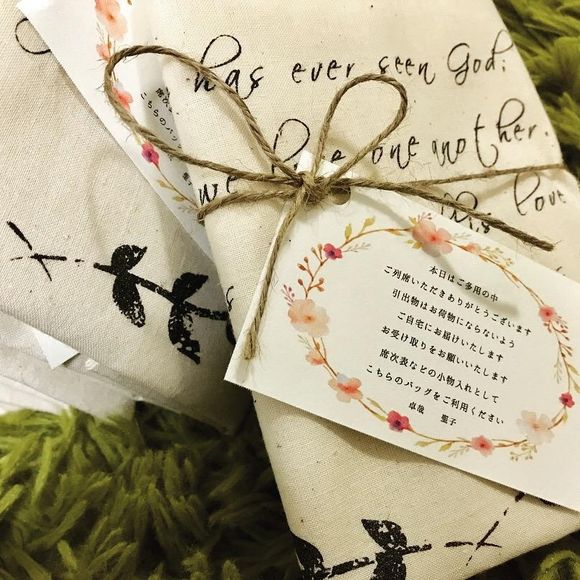 has ever seen God;
we love one another,
His love
本日はご多用の中
ご列席いただきありがとうございます
引出物はお荷物にならないよう
ご自宅にお届けいたします
お受け取りをお願いいたします
席次表などの小物入れとして
こちらのバッグをご利用ください
卓哉 聖子
席次
こちらのバッグ